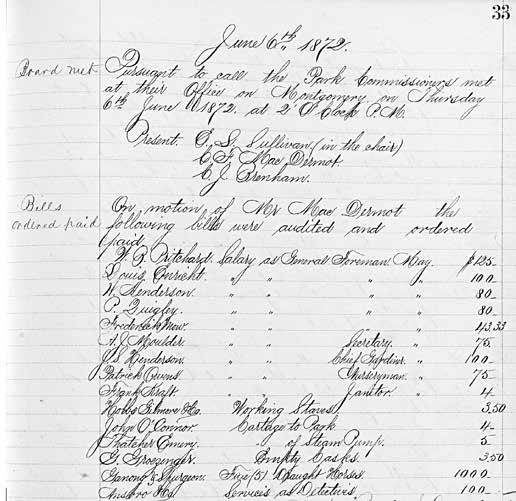 33
June 6th 1872.
Board met
Pursuant to call the Park Commissioners met
at their Office on Montgomery on Thursday
6th June 1872. at 2 O'Clock P.M.
Present. E. L. Sullivan (in the chair)
C. F. Mac Dermot.
C. J. Brenham.
Bills
ordered paid
On motion of Mr Mac Dermot the
following bills were audited and ordered
paid
W. P. Pritchard Salary as General Foreman May. $125
Louis Enricht. " " " " 100-
W. Henderson. " " " " 80-
P. Quigley. " " " " 80-
Frederick " " " " 43.33
A. J. Moulder " " Secretary. " 75
J. S. Henderson. " " Chief Gardinr. " 100-
Patrick Owens " " Nurseryman. " 75-
Frank Kraft " " Janitor " 4-
Hobbs Gilmore & Co. Working Staves 3.50
John O'Connor. Cartage to Park 4-
Thatcher Emery. " of Steam Pump. 5-
G. Groezinger. Empty Casks. 3.50
Ganong & Spurgeon. Five (5) Draught Horses. 1000-
Services as Detectives, 100-